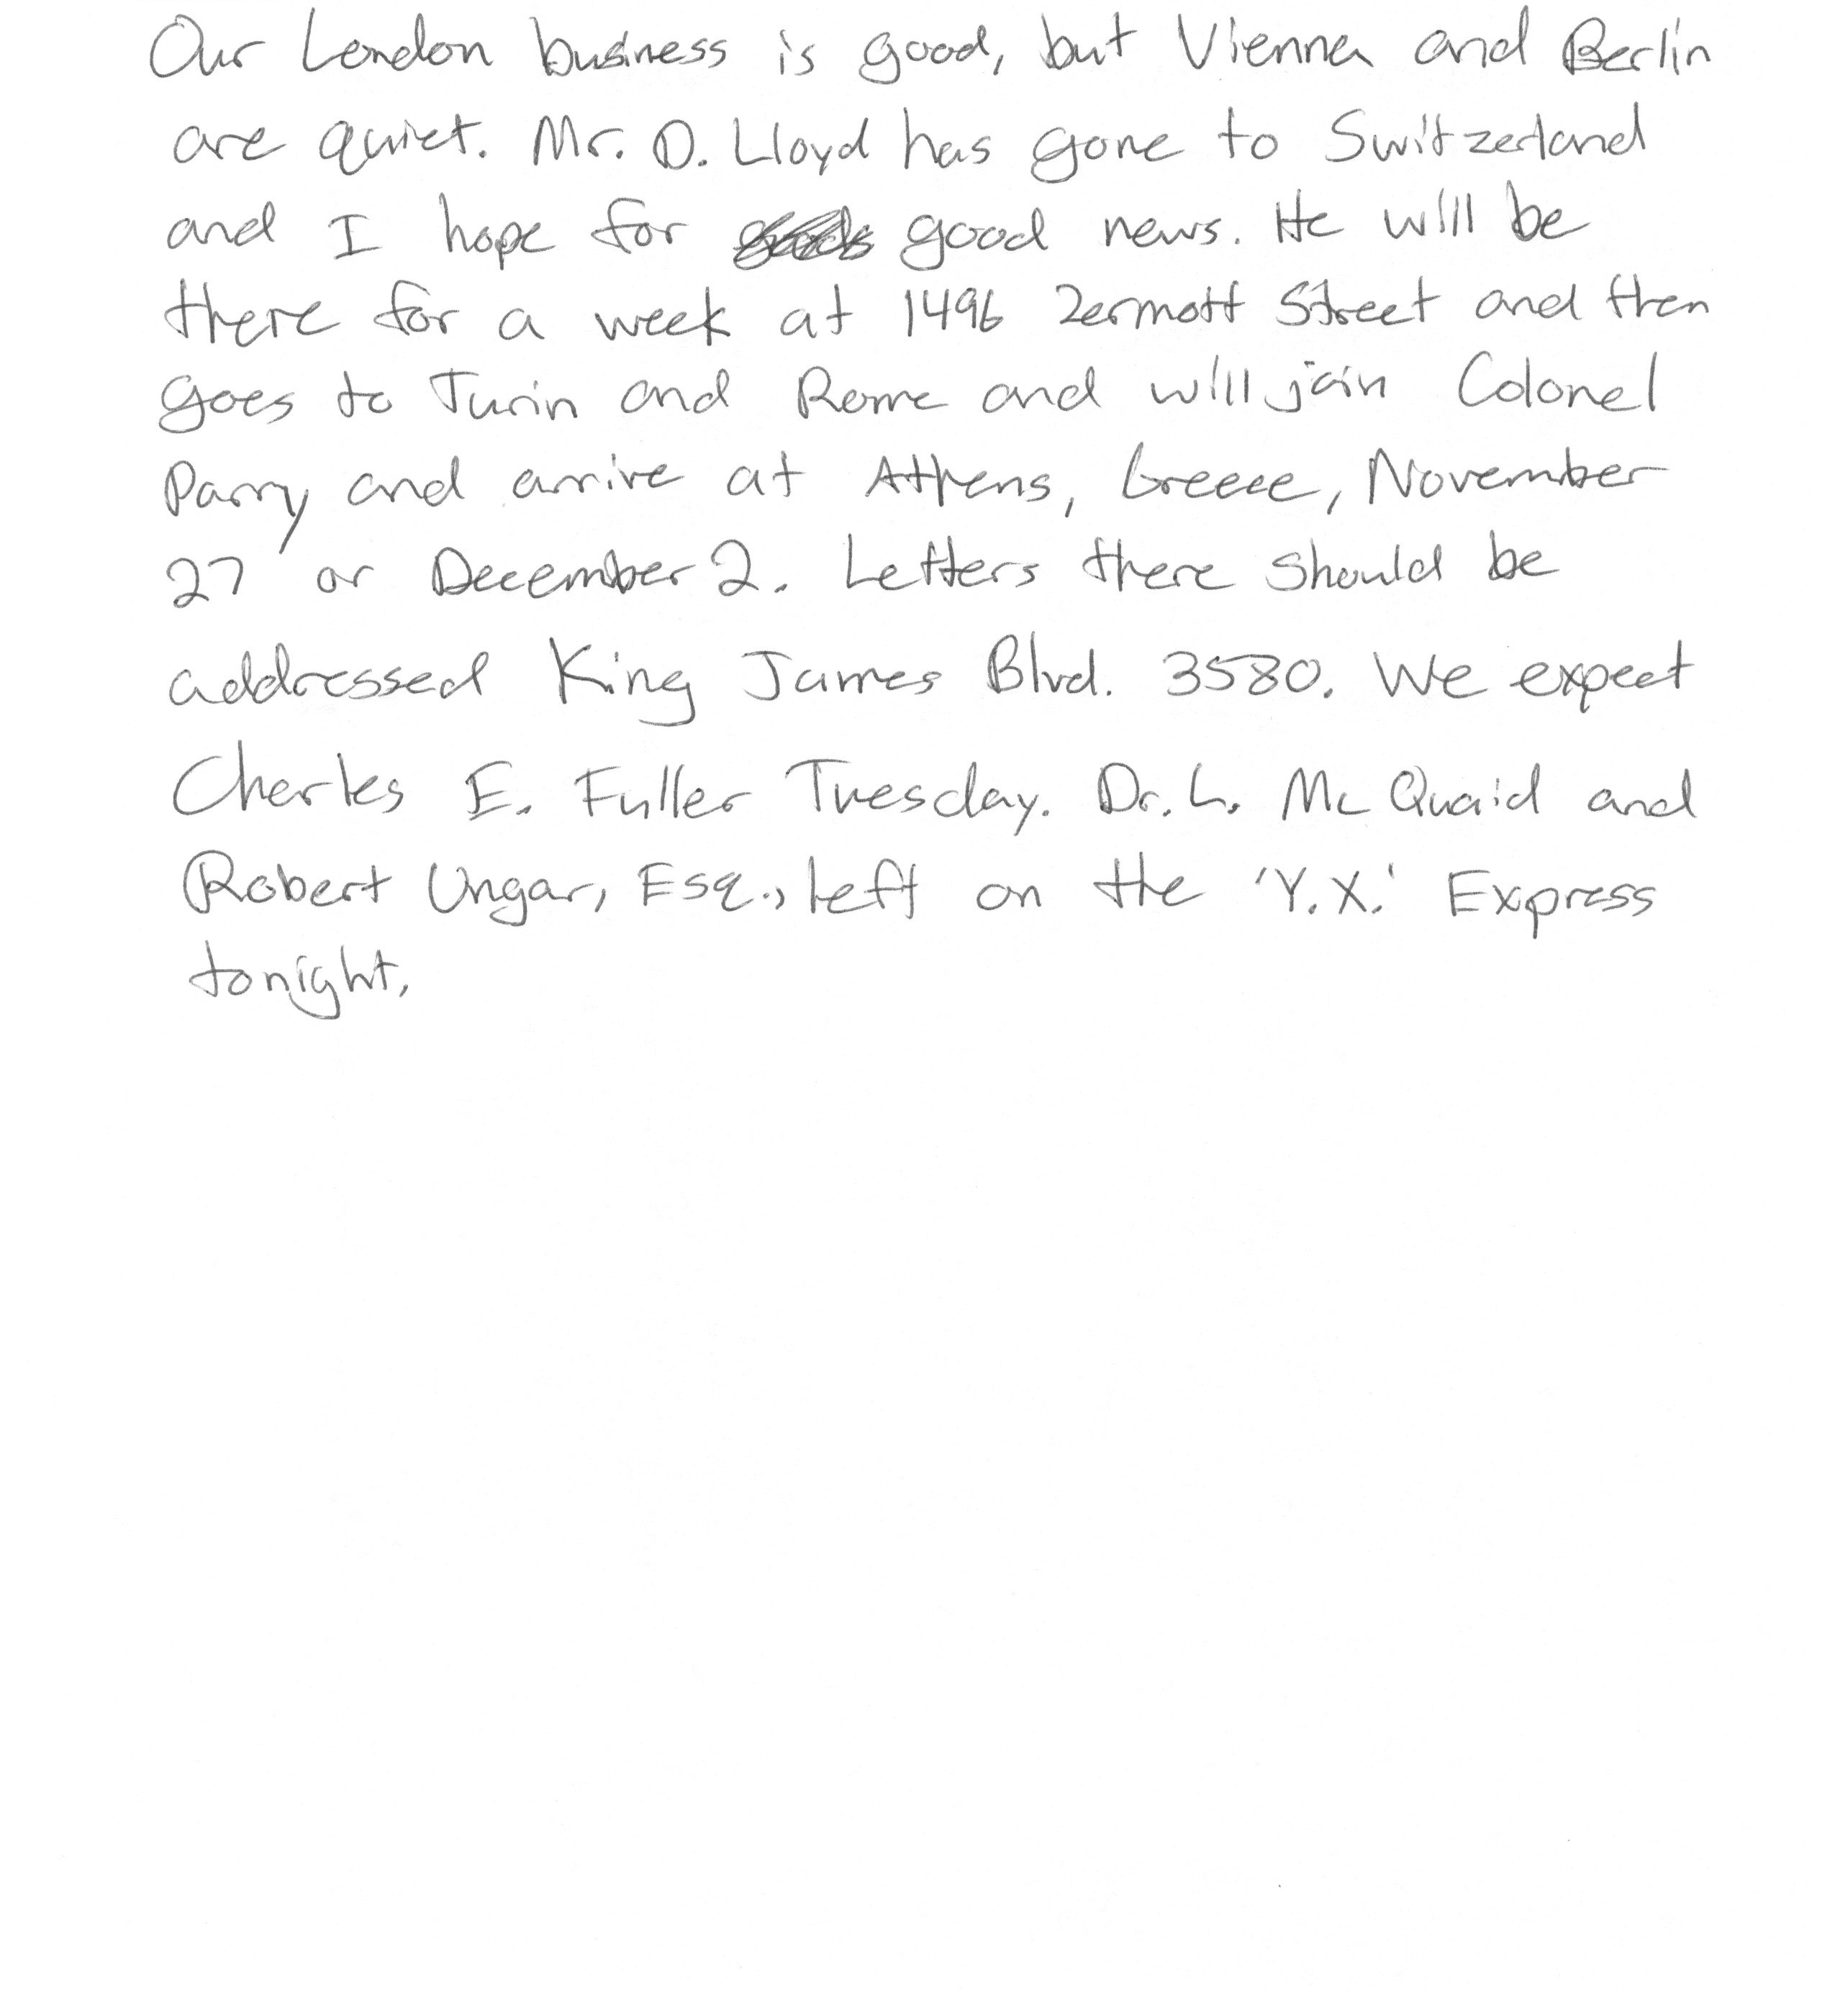 Our London business is good, but Vienna and Berlin
are quiet. Mr. D. Lloyd has gone to Switzerland
and I hope for good news. He will be
there for a week at 1496 Zermott Street and then
goes to Turin and Rome and will join Colonel
Parry and arrive at Athens, Greece, November
27 or December 2. Letters there should be
addressed King James Blvd. 3580. We expect
Charles E. Fuller Tuesday. Dr. L. McQuaid and
Robert Ungar, Esq., left on the 'Y.X.' Express
tonight.